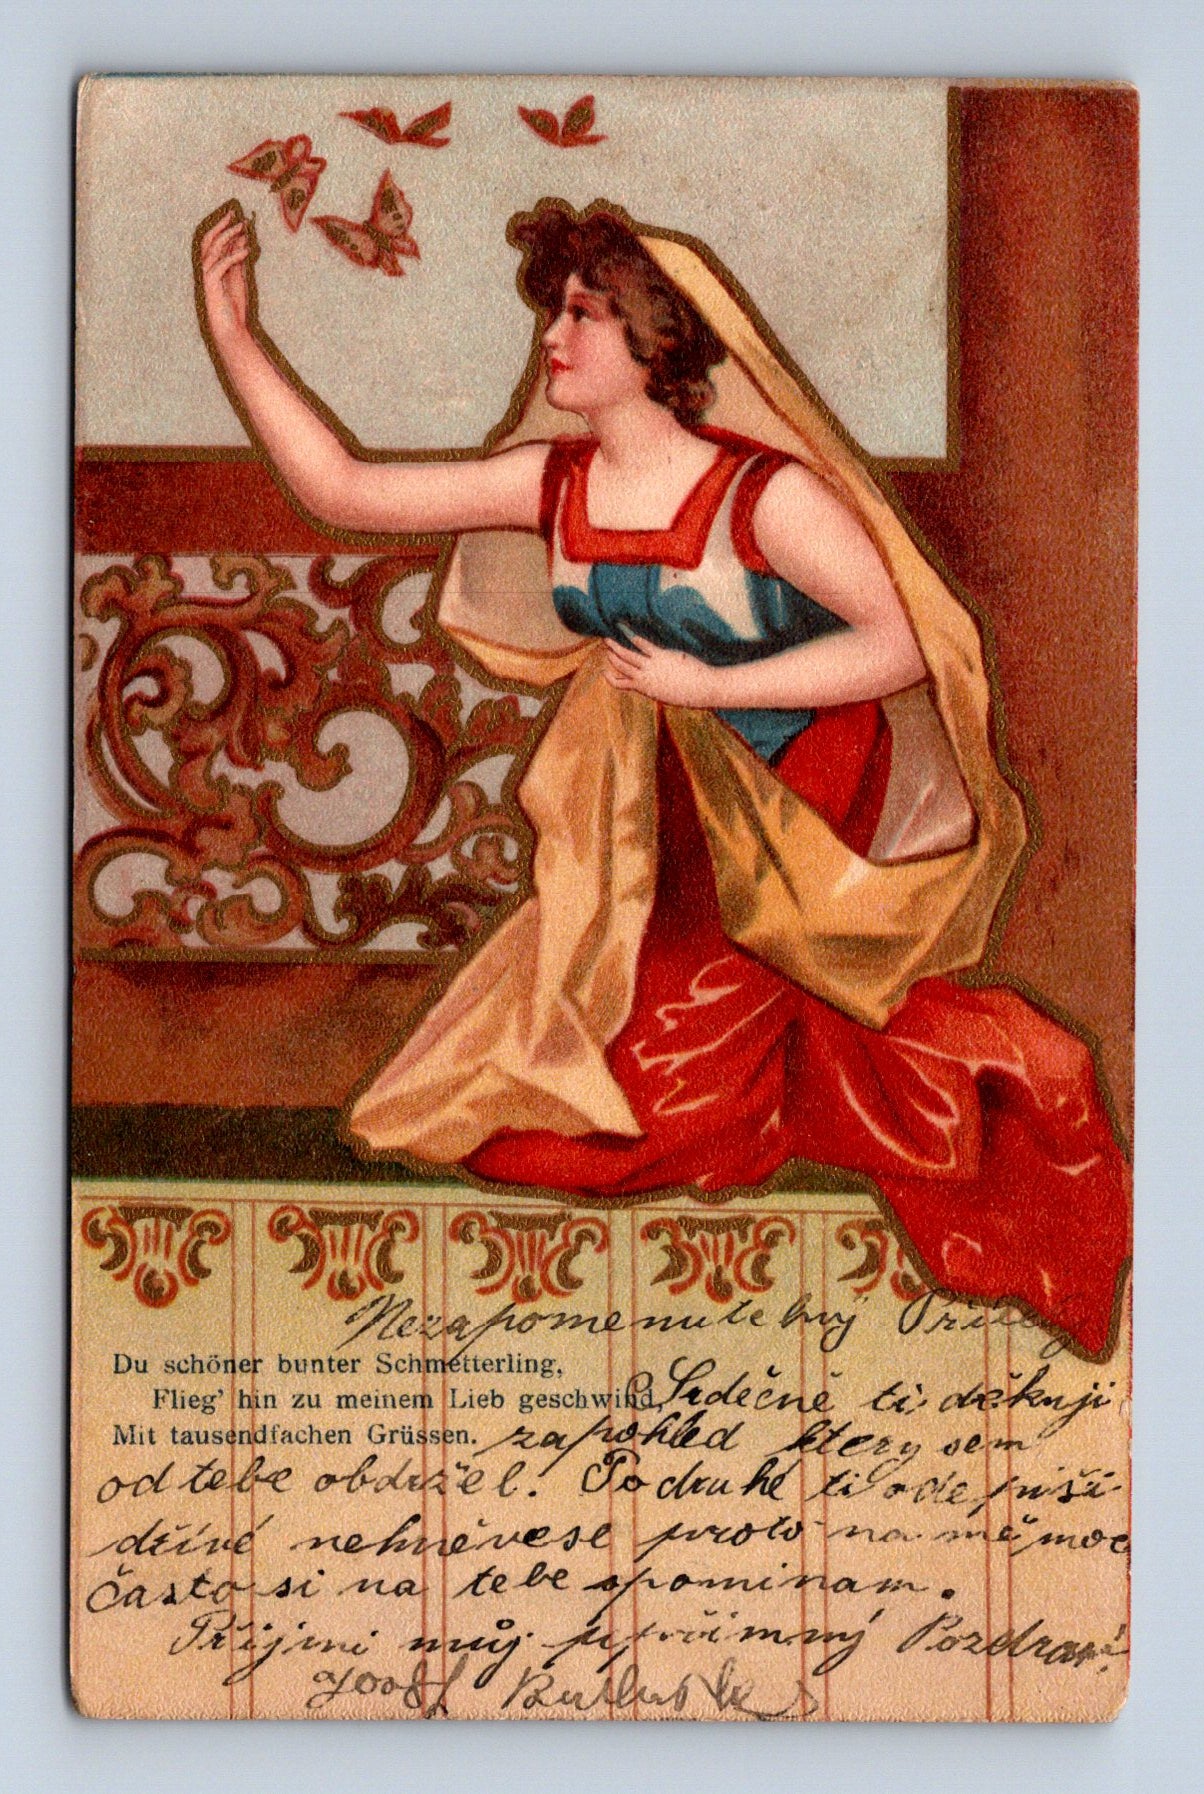 Nezapomenute
Du schöner bunter Schmetterling,
Flieg' hin zu meinem Lieb geschwind,
Mit tausendfachen Grüssen.
Srdečně ti děkuji
za pohled ktery sem
od tebe obdržel. Podruhé ti odepiši
dřívé nehněvese proto na mě moc
často si na tebe spominam.
Přijmi můj upřimný Pozdrav!
Josef